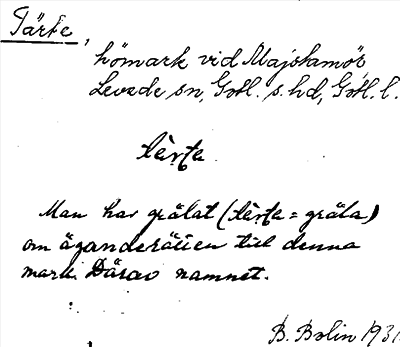 Tärte,
hömark vid Majstamör
Levede sn, Gotl. s. hd, Gotl. l.
tèrta
Man har grälat (tèrta = gräla)
om äganderätten till denna
mark. Därav namnet.
B. Bolin 1931